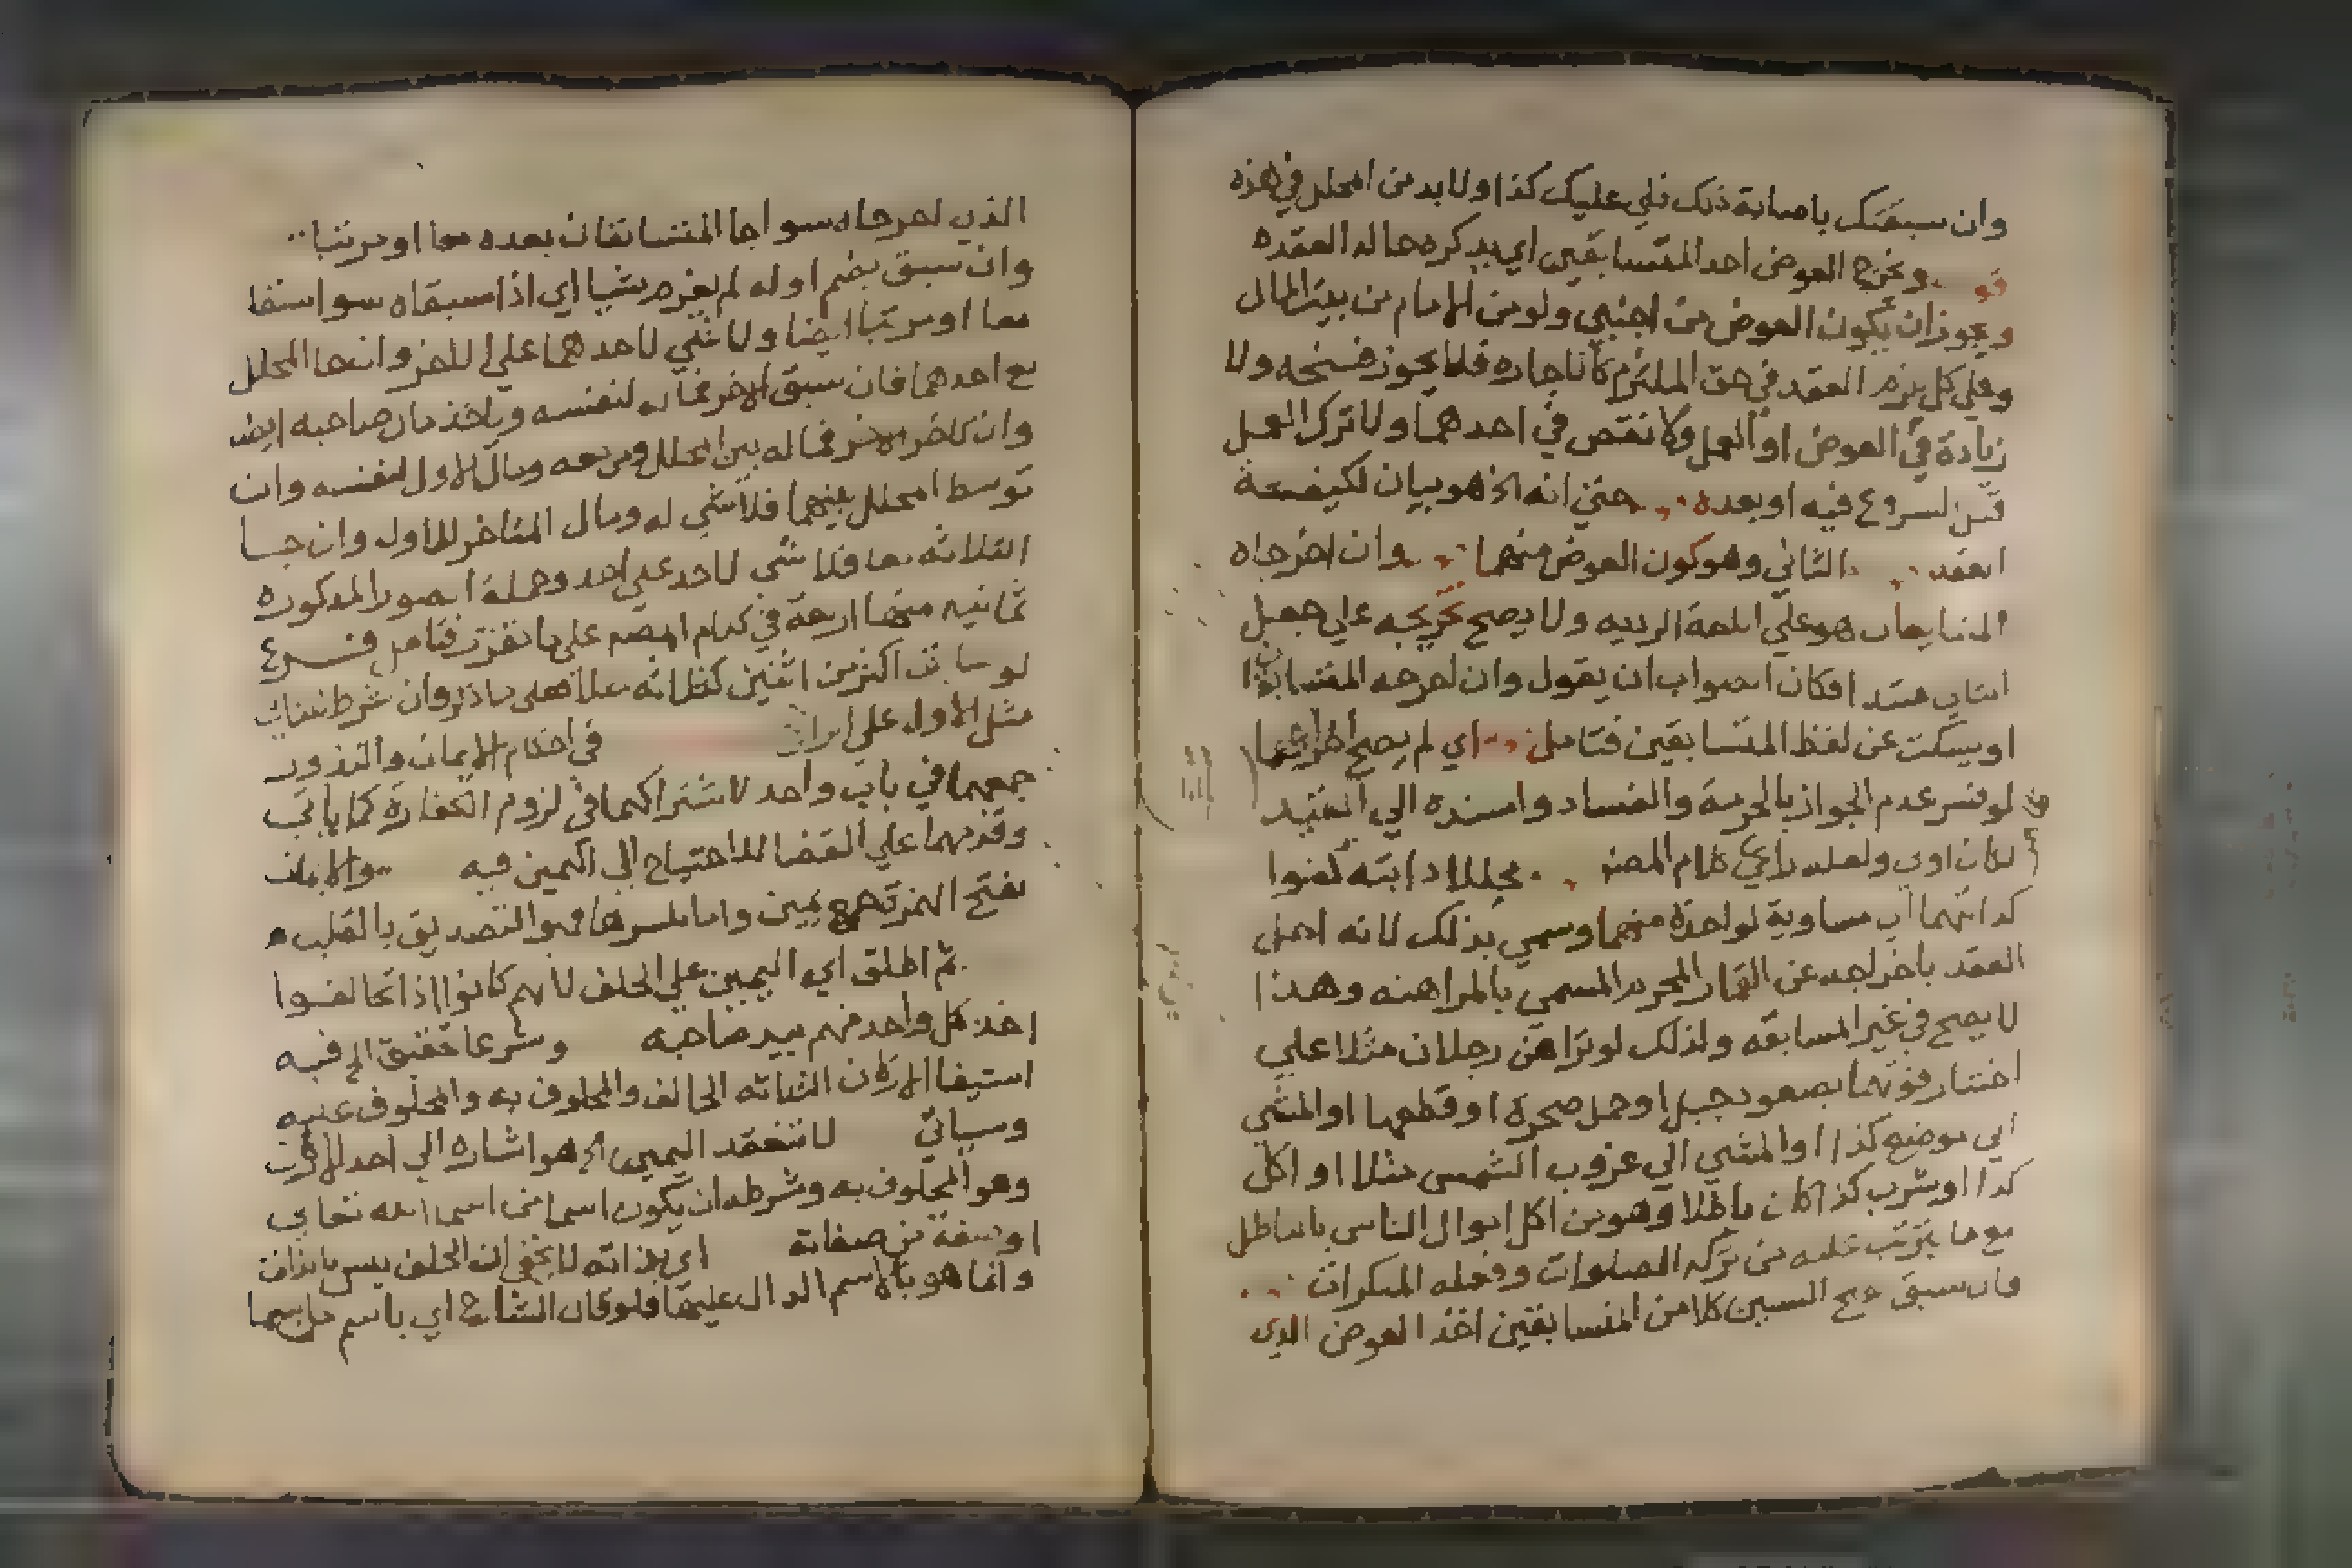 وان سبقتك باصابة ذلك فلي عليك كذا ولا بد من المحلل في هذه
ويخرج العوض احد المتسابقين اي يذكره حالة العقده
ويجوز ان يكون العوض من اجنبي ولو من الامام من بيت المال
وعلي كل يلزم العقد في حق الملتزم كالاجاره فلا يجوز فسخه ولا
زيادة في العوض او العمل ولا نقص في احدهما ولا ترك العمل
قبل الشروع فيه او بعده حتي انه الخ هو بيان لكيفية
العقد الثاني وهو كون العوض منهما وان اخرجاه
المتسابقان هو علي اللغة الرديه ولا يصح تخريجه علي جعل
فكان الصواب ان يقول وان اخرجه المتسابقان
او يسكت عن لفظ المتسابقين فتامل اي لم يصح اخراجهما
لو فسر عدم الجواز بالحرمة والفساد واسنده الي العقد
لكان اولي ولعله راعي كلام المصنف محللا دابته كفوا
كدابتهما اي مساوية لواحدة منهما وسمي بذلك لانه احل
العقد باخراجه عن القمار المحرم المسمي بالمراهنه وهذا
لا يصح في غير المسابقه ولذلك لو تراهن رجلان مثلا علي
اختبار قوتهما بصعود جبل او حمل صخرة او قطعها او المشي
الي موضع كذا او المشي الي غروب الشمس مثلا او اكل
كذا او شرب كذا كان باطلا وهو من اكل اموال الناس بالباطل
مع ما يترتب عليه من تركه الصلوات وفعله المنكرات
فان سبق كلا من المتسابقين اخذ العوض الذي
الذي اخرجاه سوا جا المتسابقان بعده معا او مرتبا
وان سبق بضم اوله لم يغرم شيا اي اذا سبقاه سوا سبقا
معا او مرتبا ايضا ولا شي لاحدهما علي الاخر وان جا المحلل
مع احدهما فان سبق الاخر فماله لنفسه وياخذ مال صاحبه ايضا
وان تاخر الاخر فماله بين المحلل ومن معه ومال الاول لنفسه وان
توسط المحلل بينهما فلا شي له ومال المتاخر للاول وان جا
الثلاثه معا فلا شي لاحد علي احد وجملة الصور المذكوره
ثمانيه منها اربعة في كلام المصنف علي ما تقرر فتامل فرع
لو سابق اكثر من اثنين كثلاثه مثلا فعلي ما ذكر وان شرط للثاني
مثل الاول علي
في احكام الايمان والنذور
جمعهما في باب واحد لاشتراكهما في لزوم الكفارة كما ياتي
وقدمهما علي القضا للاحتياج الي اليمين فيه والايمان
بفتح الهمزة جمع يمين واما بكسرها فهو التصديق بالقلب
ثم اطلق اي اليمين علي الحلف لانهم كانوا اذا تحالفوا
اخذ كل واحد منهم بيد صاحبه وشرعا تحقيق الخ فيه
استيفا الاركان الثلاثه الحالف والمحلوف به والمحلوف عليه
وسياتي لا تنعقد اليمين الخ هو اشاره الي احد الاركان
وهو المحلوف به وشرطه ان يكون اسما من اسما الله تعالي
او صفة من صفاته اي بذاته لا يخفي ان الحلف ليس بالذات
وانما هو بالاسم الدال عليها فلو قال الشارح اي باسم